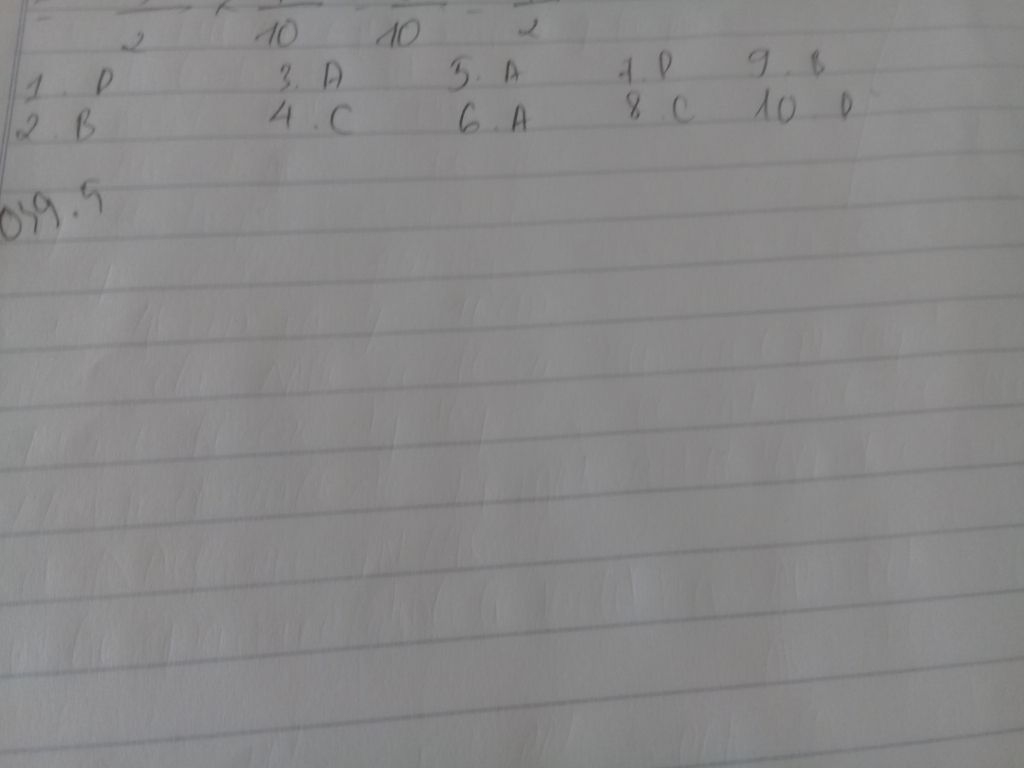 2 10 10 2
1. D 3. A 5. A 7. D 9. B
2. B 4. C 6. A 8. C 10. D